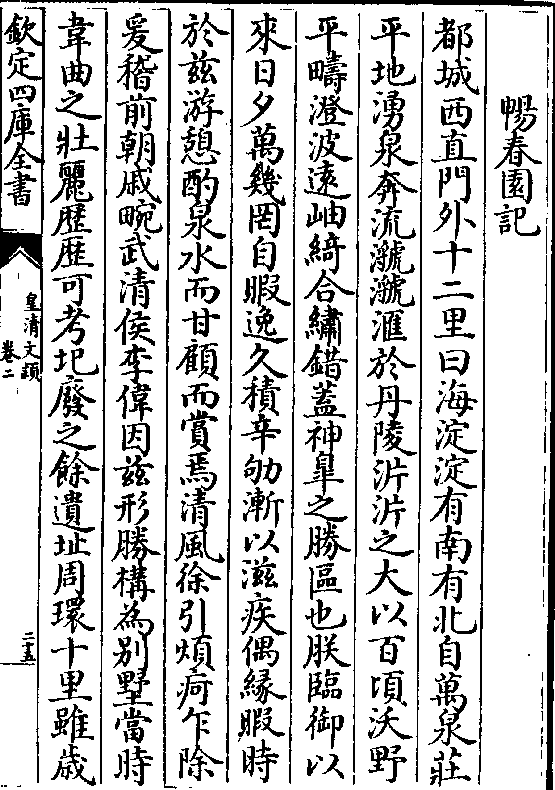 暢春園記
都城西直門外十二里曰海淀淀有南有北自萬泉莊
平地湧泉奔流㶁㶁滙於丹陵沜沜之大以百頃沃野
平疇澄波遠岫綺合繡錯蓋神臯之勝區也朕臨御以
來日夕萬幾罔自暇逸久積辛劬漸以滋疾偶緣暇時
於兹游憩酌泉水而甘顧而賞焉清風徐引煩疴乍除
爰稽前朝戚畹武清侯李偉因兹形勝構為别墅當時
韋曲之壯麗歴歴可考圯廢之餘遺址周環十里雖歳
欽定四庫全書
皇清文頴
卷二
二十五